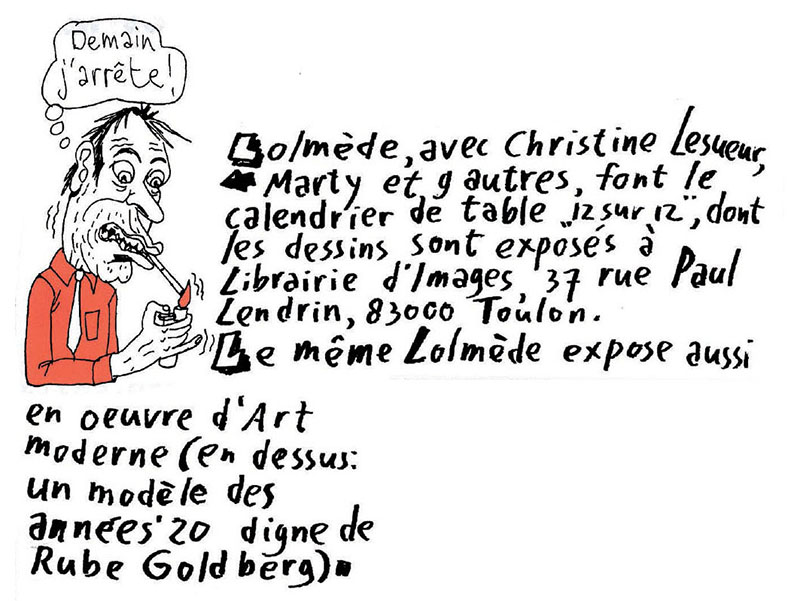 Demain
j'arrête!
Lolmède, avec Christine Lesueur,
Marty et 9 autres, font le
calendrier de table „12 sur 12", dont
les dessins sont exposés à
Librairie d'Images, 37 rue Paul
Lendrin, 83000 Toulon.
Le même Lolmède expose aussi
en oeuvre d'Art
moderne (en dessus:
un modèle des
années'20 digne de
Rube Goldberg).